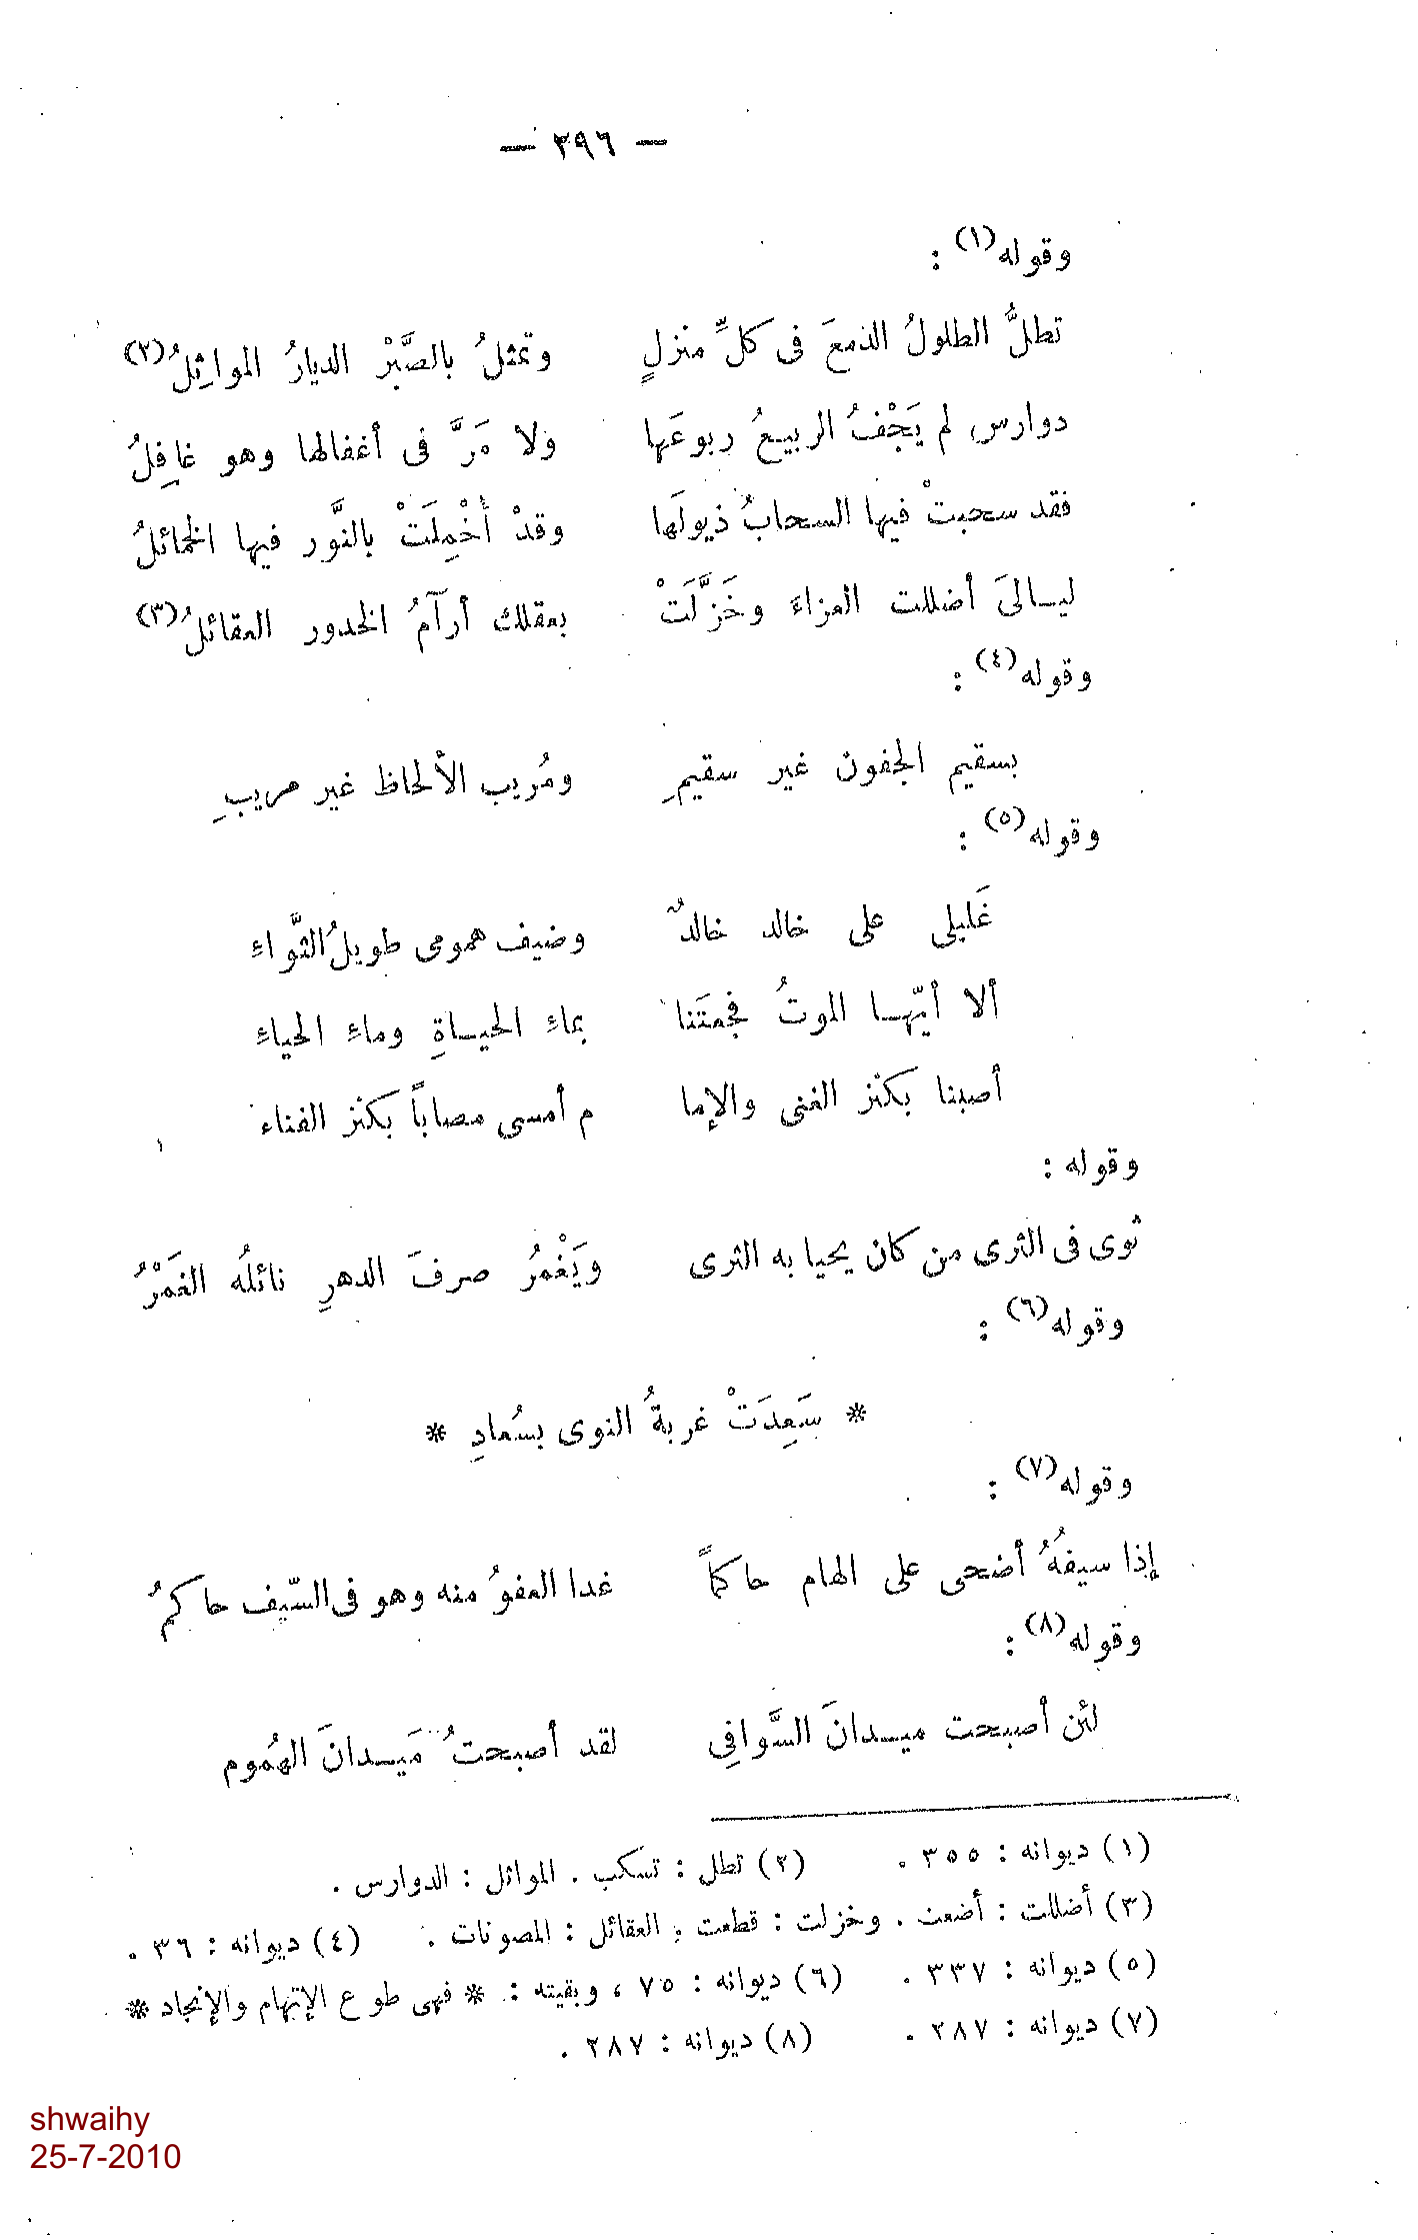 — ٢٩٦ —
وقوله(١) :
تطلُّ الطلولُ الدمعَ فى كلِّ منزلٍ وتمثلُ بالصَّبْر الديارُ المواثِلُ(٢)
دوارس لم يَجْفُ الربيعُ ربوعَها ولا مَرَّ فى أغفالها وهو غافِلُ
فقد سحبتْ فيها السحابُ ذيولَها وقدْ أُخْمِلَتْ بالنَّور فيها الخمائلُ
ليالىَ أضللت العزاءَ وخَزَّلَتْ بعقلك أرآمُ الخدور العقائلُ(٣)
وقوله(٤) :
بسقيم الجفون غير سقيمِ ومُريب الألحاظ غير مريبِ
وقوله(٥) :
غَليلى على خالد خالدٌ وضيف همومى طويلُ الثَّواءِ
ألا أيّها الموتُ فجعتَنا بماء الحياةِ وماء الحياءِ
أصبنا بكنْز الغنى والإما م أمسى مصاباً بكنْز الفناء
وقوله :
ثوى فى الثرى من كان يحيا به الثرى ويَغْمرُ صرفَ الدهرِ نائلُه الغَمْرُ
وقوله(٦) :
* سَعِدَتْ غربةُ النوى بسُعادِ *
وقوله(٧) :
إذا سيفُهُ أضحى على الهام حاكماً غدا العفوُ منه وهو فى السّيف حاكمُ
وقوله(٨) :
لئن أصبحت ميدانَ السَّوافِى لقد أصبحتُ مَيدانَ الهُموم
(١) ديوانه : ٣٥٥ . (٢) تطل : تسكب . المواثل : الدوارس .
(٣) أضللت : أضعت . وخزلت : قطعت . العقائل : المصونات . (٤) ديوانه : ٣٦ .
(٥) ديوانه : ٣٣٧ . (٦) ديوانه : ٧٥ ، وبقيته : * فهى طوع الإتهام والإنجاد *
(٧) ديوانه : ٢٨٧ . (٨) ديوانه : ٢٨٧ .
shwaihy
25-7-2010